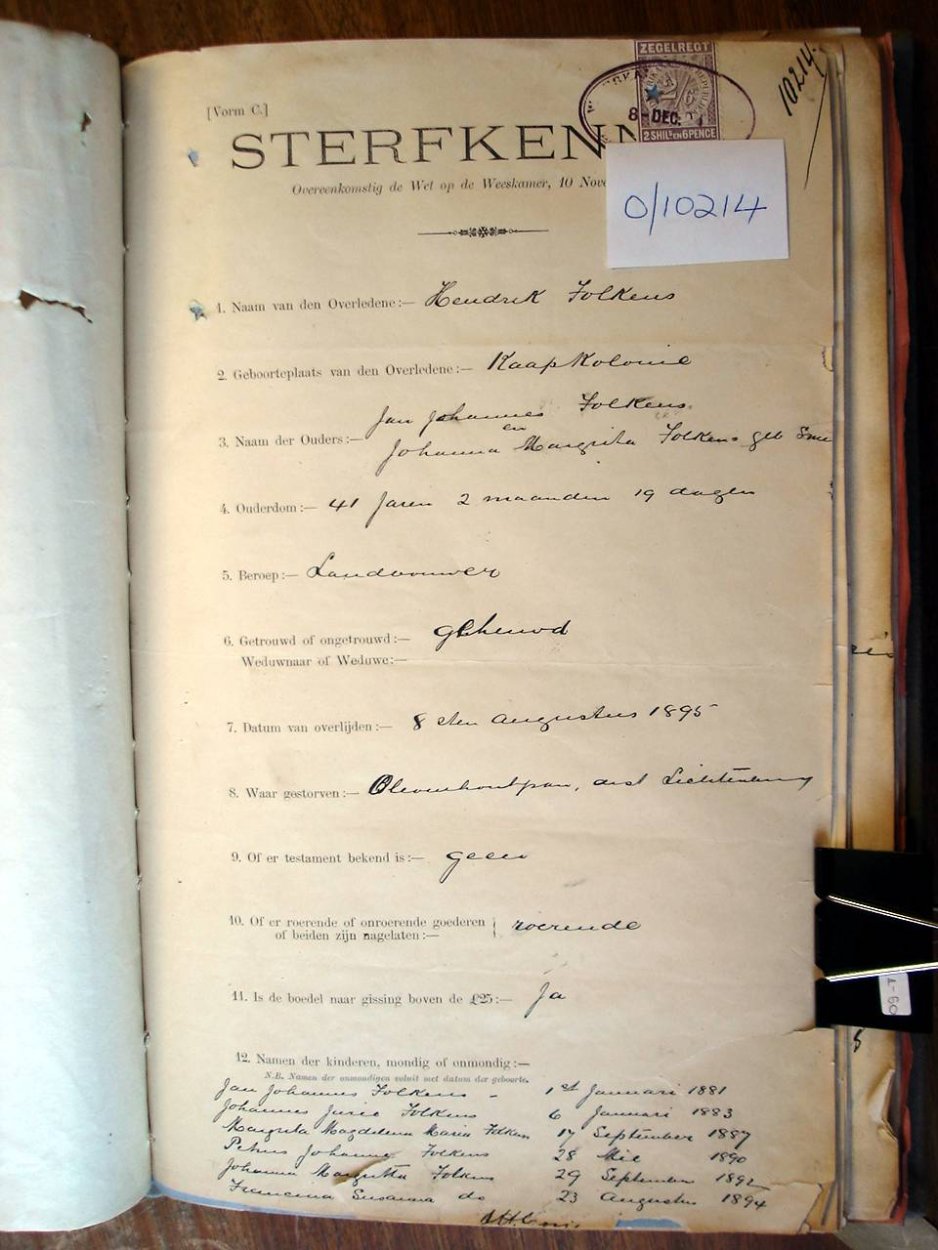 10214
ZEGELREGT
8 DEC.
2 SHILS EN 6 PENCE
[Vorm C.]
STERFKENN
Overeenkomstig de Wet op de Weeskamer, 10 Nove
0/10214
1. Naam van den Overledene:— Hendrik Folkens
2. Geboorteplaats van den Overledene:— Kaapkolonie
Jan Johannes Folkens
en
3. Naam der Ouders:— Johanna Margrita Folkens geb
4. Ouderdom:— 41 Jaren 2 maanden 19 dagen
5. Beroep:— Landbouwer
6. Getrouwd of ongetrouwd:— gehuwd
Weduwnaar of Weduwe:—
7. Datum van overlijden:— 8 sten Augustus 1895
8. Waar gestorven:— Olievenhoutpan, dist Lichtenburg
9. Of er testament bekend is:— geen
10. Of er roerende of onroerende goederen
of beiden zijn nagelaten:— roerende
11. Is de boedel naar gissing boven de £25:— Ja
12. Namen der kinderen, mondig of onmondig:—
N.B. Namen der onmondigen voluit met datum der geboorte.
Jan Johannes Folkens - 1st Januari 1881
Johannes Jurie Folkens 6 Januari 1883
Margrita Magdalena Maria Folkens 17 September 1887
Petrus Johannes Folkens 28 Mei 1890
Johanna Margritta Folkens 29 September 1892
Francina Susanna do 23 Augustus 1894